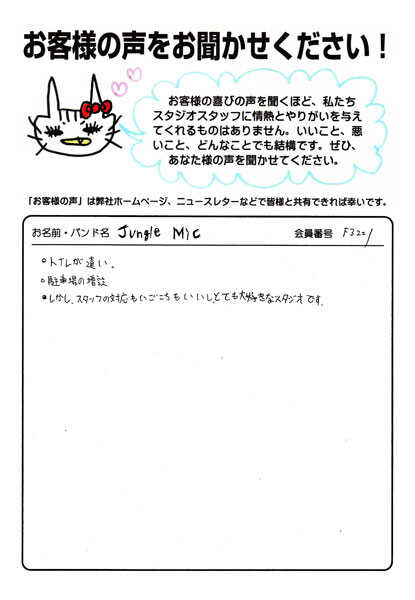 お客様の声をお聞かせください!
お客様の喜びの声を聞くほど、私たち
スタジオスタッフに情熱とやりがいを与え
てくれるものはありません。いいこと、悪
いこと、どんなことでも結構です。ぜひ、
あなた様の声を聞かせてください。
「お客様の声」は弊社ホームページ、ニュースレターなどで皆様と共有できれば幸いです。
お名前・バンド名 Jungle Mic 会員番号 F3221
○トイレが遠い。
○駐車場の増設
●しかし、スタッフの対応もいごこちもいいしとても大好きなスタジオです。